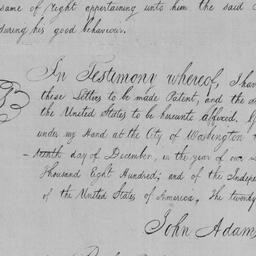 same of right appertaining unto him the said
during his good behaviour.
In Testimony whereof, I have
these Letters to be made Patent, and the
the United States to be hereunto affixed.
under my Hand at the City of Washington
teenth day of December, in the year of our
Thousand Eight Hundred; and of the Indepe
of the United States of America, the twenty
John Adam